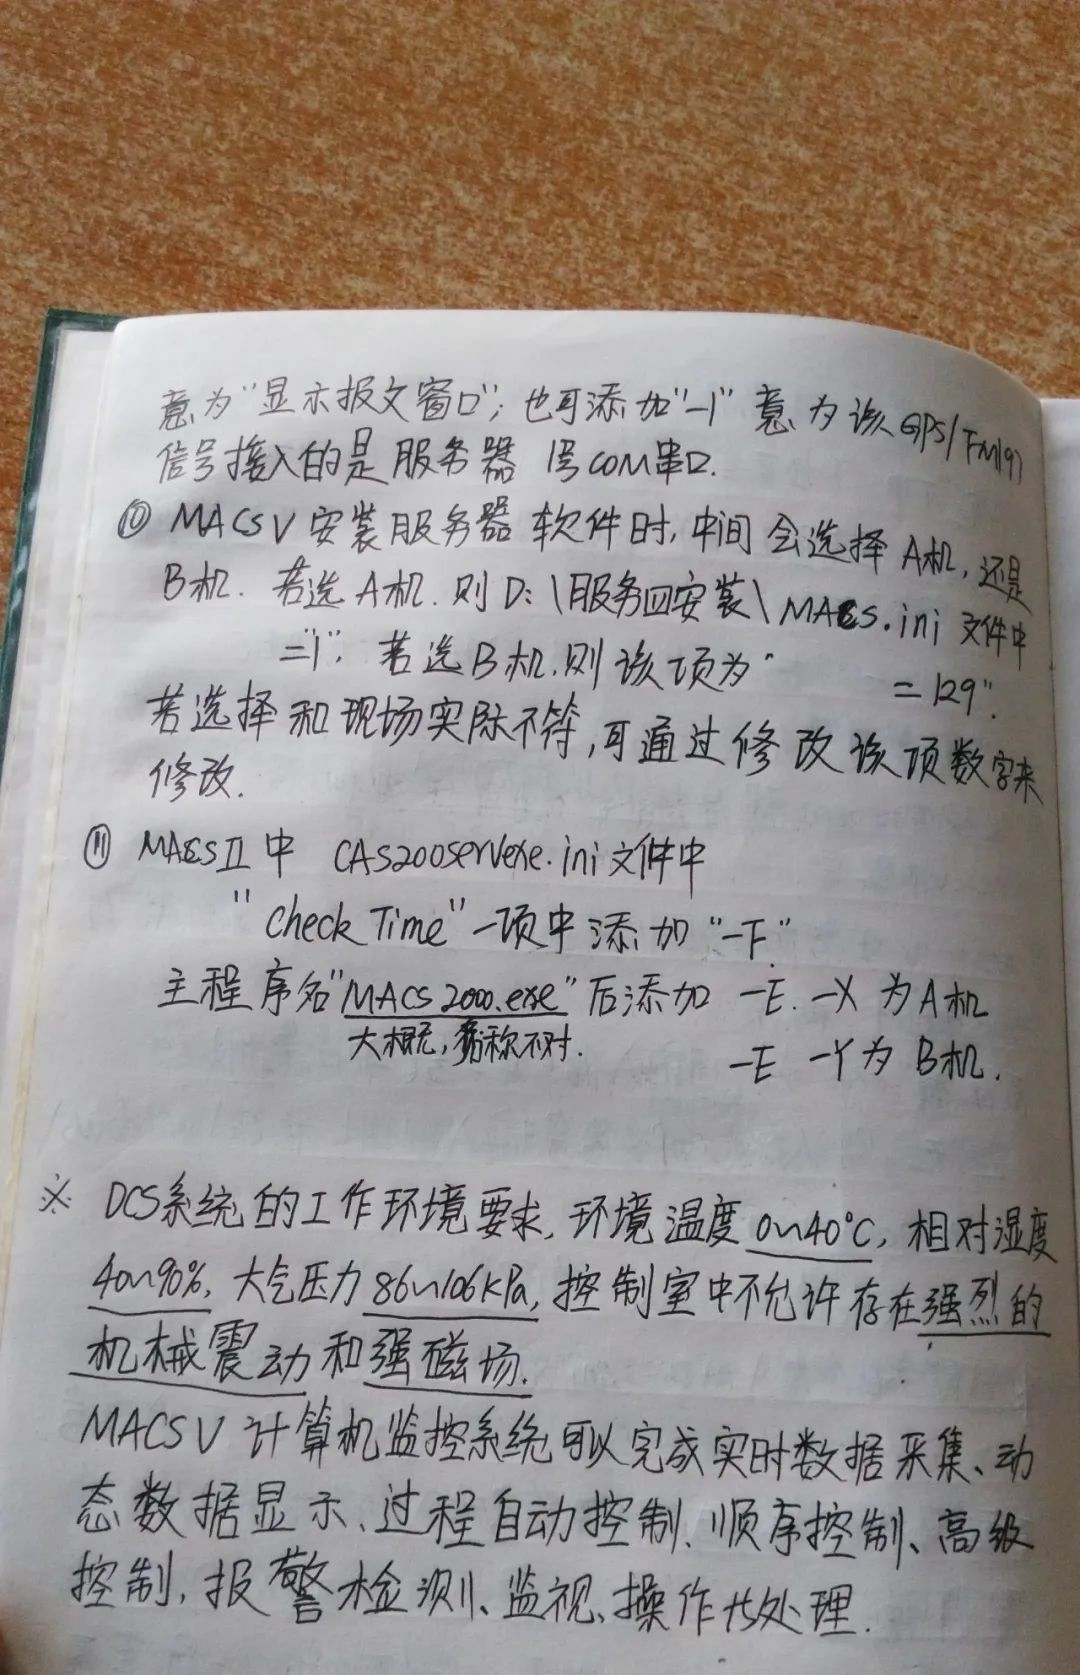 意为"显示报文窗口"; 也可添加"-1" 意为该GPS/FM197
信号接入的是服务器 1号COM串口.
⑩ MACSV安装服务器软件时, 中间会选择A机, 还是
B机. 若选A机. 则D:\服务四安装\MACS.ini 文件中
="1". 若选B机. 则该项为" =129".
若选择和现场实际不符, 可通过修改该项数字来
修改.
⑪ MACSII中 CAS200servexe.ini文件中
"Check Time"一项中添加"-F"
主程序名"MACS2000.exe"后添加 -E. -X 为A机
大概, 名称不对.
-E -Y为B机.
※ DCS系统的工作环境要求, 环境温度0~40℃, 相对湿度
40~90%, 大气压力86~106kPa, 控制室中不允许存在强烈的
机械震动和强磁场.
MACSV计算机监控系统可以完成实时数据采集、动
态数据显示、过程自动控制、顺序控制、高级
控制, 报警检测、监视、操作 处理.